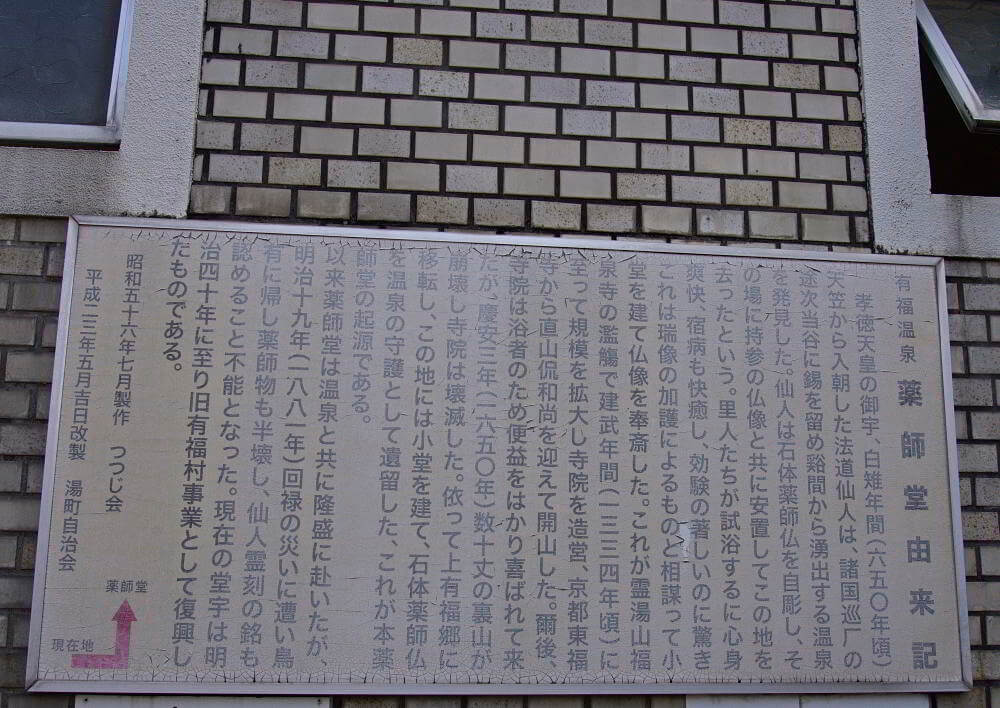 有福温泉 薬師堂由来記
孝徳天皇の御宇、白雉年間(六五〇年頃)
天竺から入朝した法道仙人は、諸国巡厂の
途次当谷に錫を留め谿間から湧出する温泉
を発見した。仙人は石体薬師仏を自彫し、そ
の場に持参の仏像と共に安置してこの地を
去ったという。里人たちが試浴するに心身
爽快、宿病も快癒し、効験の著しいのに驚き
これは瑞像の加護によるものと相謀って小
堂を建て仏像を奉斎した。これが霊湯山福
泉寺の濫觴で建武年間(一三三四年頃)に
至って規模を拡大し寺院を造営、京都東福
寺から直山侃和尚を迎えて開山した。爾後、
寺院は浴者のため便益をはかり喜ばれて来
たが、慶安三年(一六五〇年)数十丈の裏山が
崩壊し寺院は壊滅した。依って上有福郷に
移転し、この地には小堂を建て、石体薬師仏
を温泉の守護として遺留した、これが本薬
師堂の起源である。
以来薬師堂は温泉と共に隆盛に赴いたが、
明治十九年(一八八一年)回禄の災いに遭い烏
有に帰し薬師物も半壊し、仙人霊刻の銘も
認めること不能となった。現在の堂宇は明
治四十年に至り旧有福村事業として復興し
たものである。
昭和五十六年七月製作 つつじ会
平成二三年五月吉日改製 湯町自治会
薬師堂
現在地